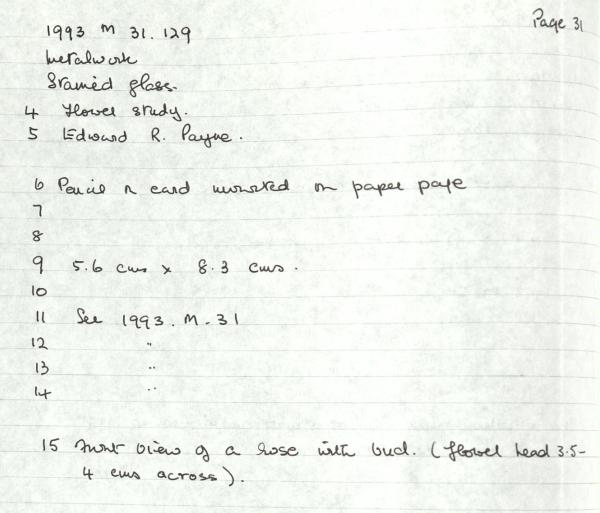 Page 31
1993 M 31.129
Metalwork
Stained glass.
4 Flower study.
5 Edward R. Payne.
6 Pencil on card mounted on paper page
7
8
9 5.6 cms x 8.3 cms.
10
11 See 1993.M.31
12 "
13 "
14 "
15 Front view of a rose with bud. (Flower head 3.5-
4 cms across).